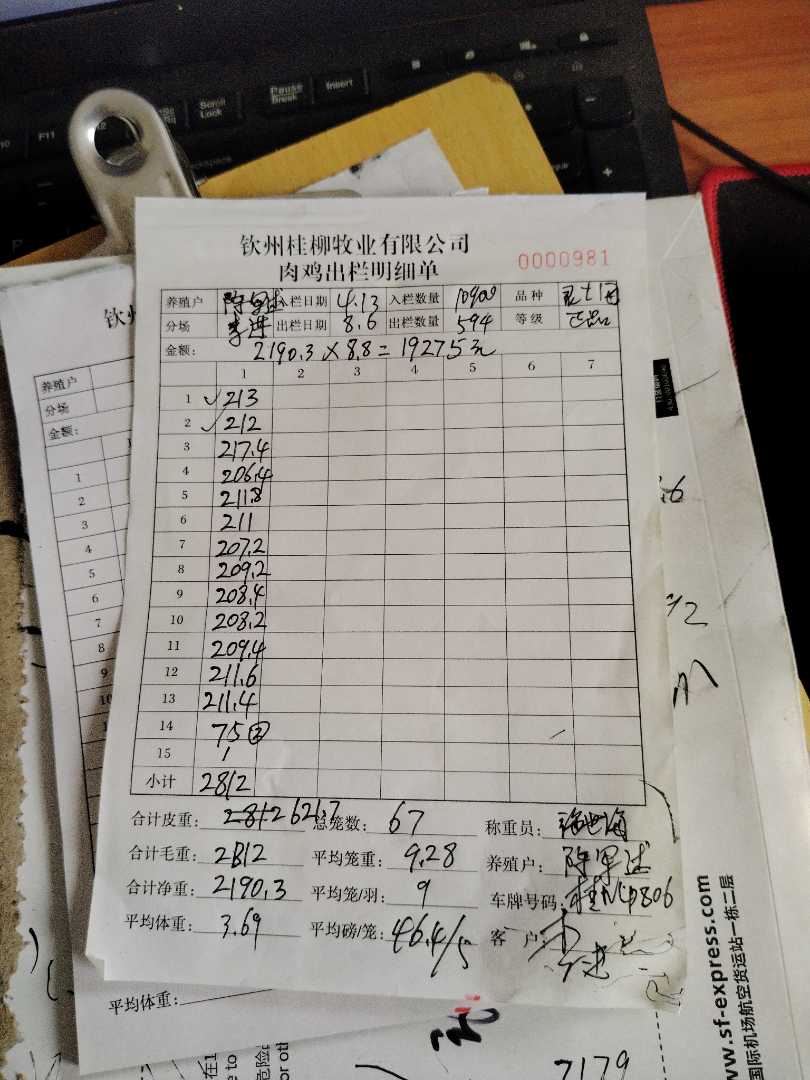 Pause
Break
Insert
Scroll
Lock
F11
钦州桂柳牧业有限公司
肉鸡出栏明细单
0000981
养殖户 入栏日期 4.13 入栏数量 10900 品种
分场 李进 出栏日期 8.6 出栏数量 594 等级 正品
金额: 2190.3×8.8=19275元
1 2 3 4 5 6 7
1 ✓213
2 ✓212
3 217.4
4 206.4
5 211.8
6 211
7 207.2
8 209.2
9 208.4
10 208.2
11 209.4
12 211.6
13 211.4
14 75②
15 /
小计 2812
合计皮重: 621.7 总笼数: 67 称重员:
合计毛重: 2812 平均笼重: 9.28 养殖户:
合计净重: 2190.3 平均笼/羽: 9 车牌号码:
平均体重: 3.69 平均磅/笼: 46.4/5 客 户:
钦州
养殖户
分场
金额:
1
2
3
4
5
6
7
8
9
平均体重:
www.sf-express.com
国际机场航空货运站一栋二层
7179